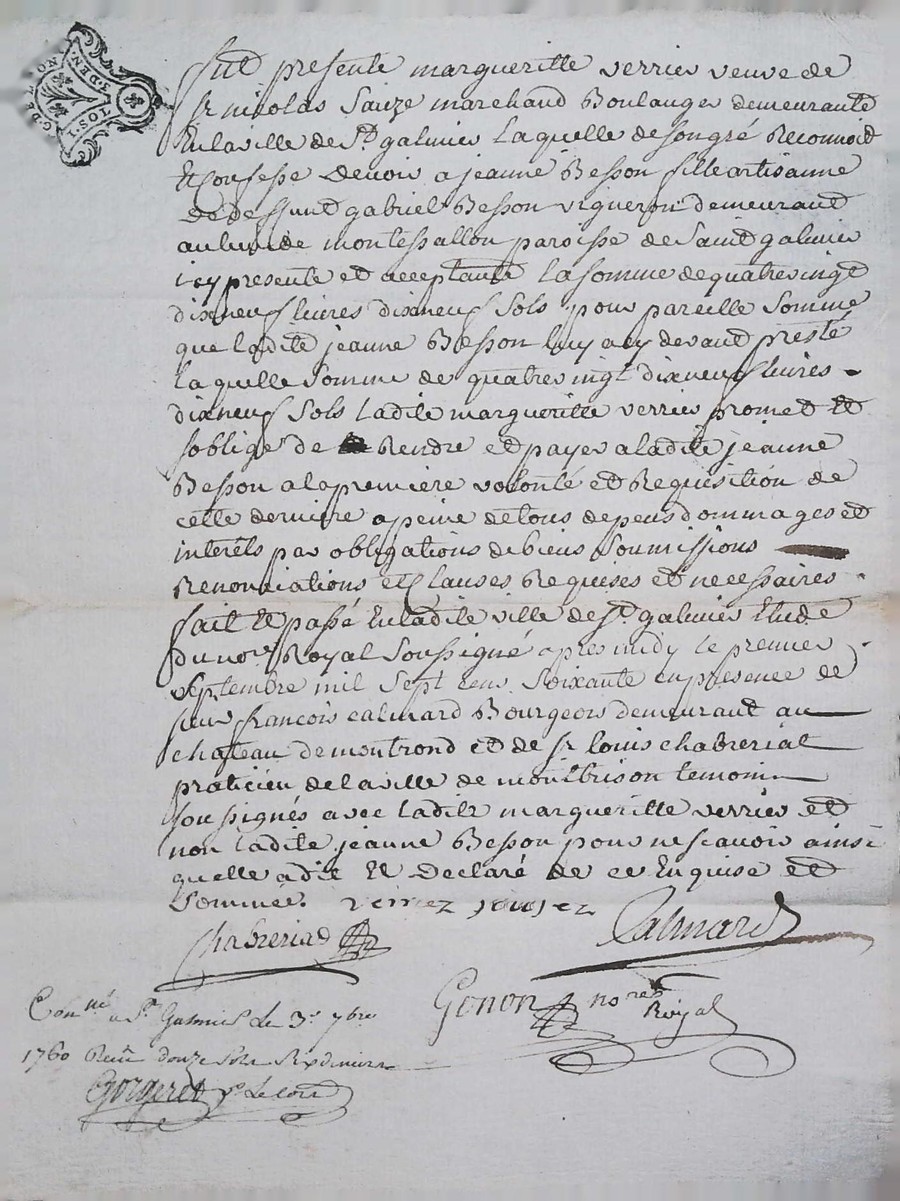 G. DE LYON
3. DEN.
1 OS.
fut presente margueritte verries veuve de
sr nicolas Sauze marchand Boulanger demeurante
En la ville de St galmier Laquelle de son gré Reconnoit
Et Confesse devoir a jeanne Besson fille artisanne
de deffunt gabriel Besson vigneron demeurant
au lieu de montessallon paroisse de Saint galmier
icy presente et acceptante la somme de quatre vingt
dix neuf livres dix neuf Sols pour pareille Somme
que ladite jeanne Besson luy a cy devant presté
laquelle Somme de quatre vingt dix neuf livres
dix neuf Sols ladite margueritte verries promet Et
soblige de Rendre et payer a ladite jeanne
Besson a la premiere volonté et Requisition de
cette derniere a peine de tous depens dommages et
interets par obligations de biens Soumissions
Renonciations et Clauses Requises et necessaires
fait Et passé En ladite ville de St galmier Etude
du nore Royal Soussigné apres midy le premier
Septembre mil Sept cens Soixante en presence de
sieur françois calmard Bourgeois demeurant au
chateau de montrond et de sr louis chabreriat
praticien de la ville de montbrison temoins
soussignés avec ladite margueritte verries et
non ladite jeanne Besson pour ne scavoir ainsi
quelle a dit Et Declaré de ce Enquise et
Sommée.
Chabreriat Calmard
Gonon nore Royal
Connlé a St Galmier le 3e 7bre
1760 Recu douze sols Six deniers
Gorgeret